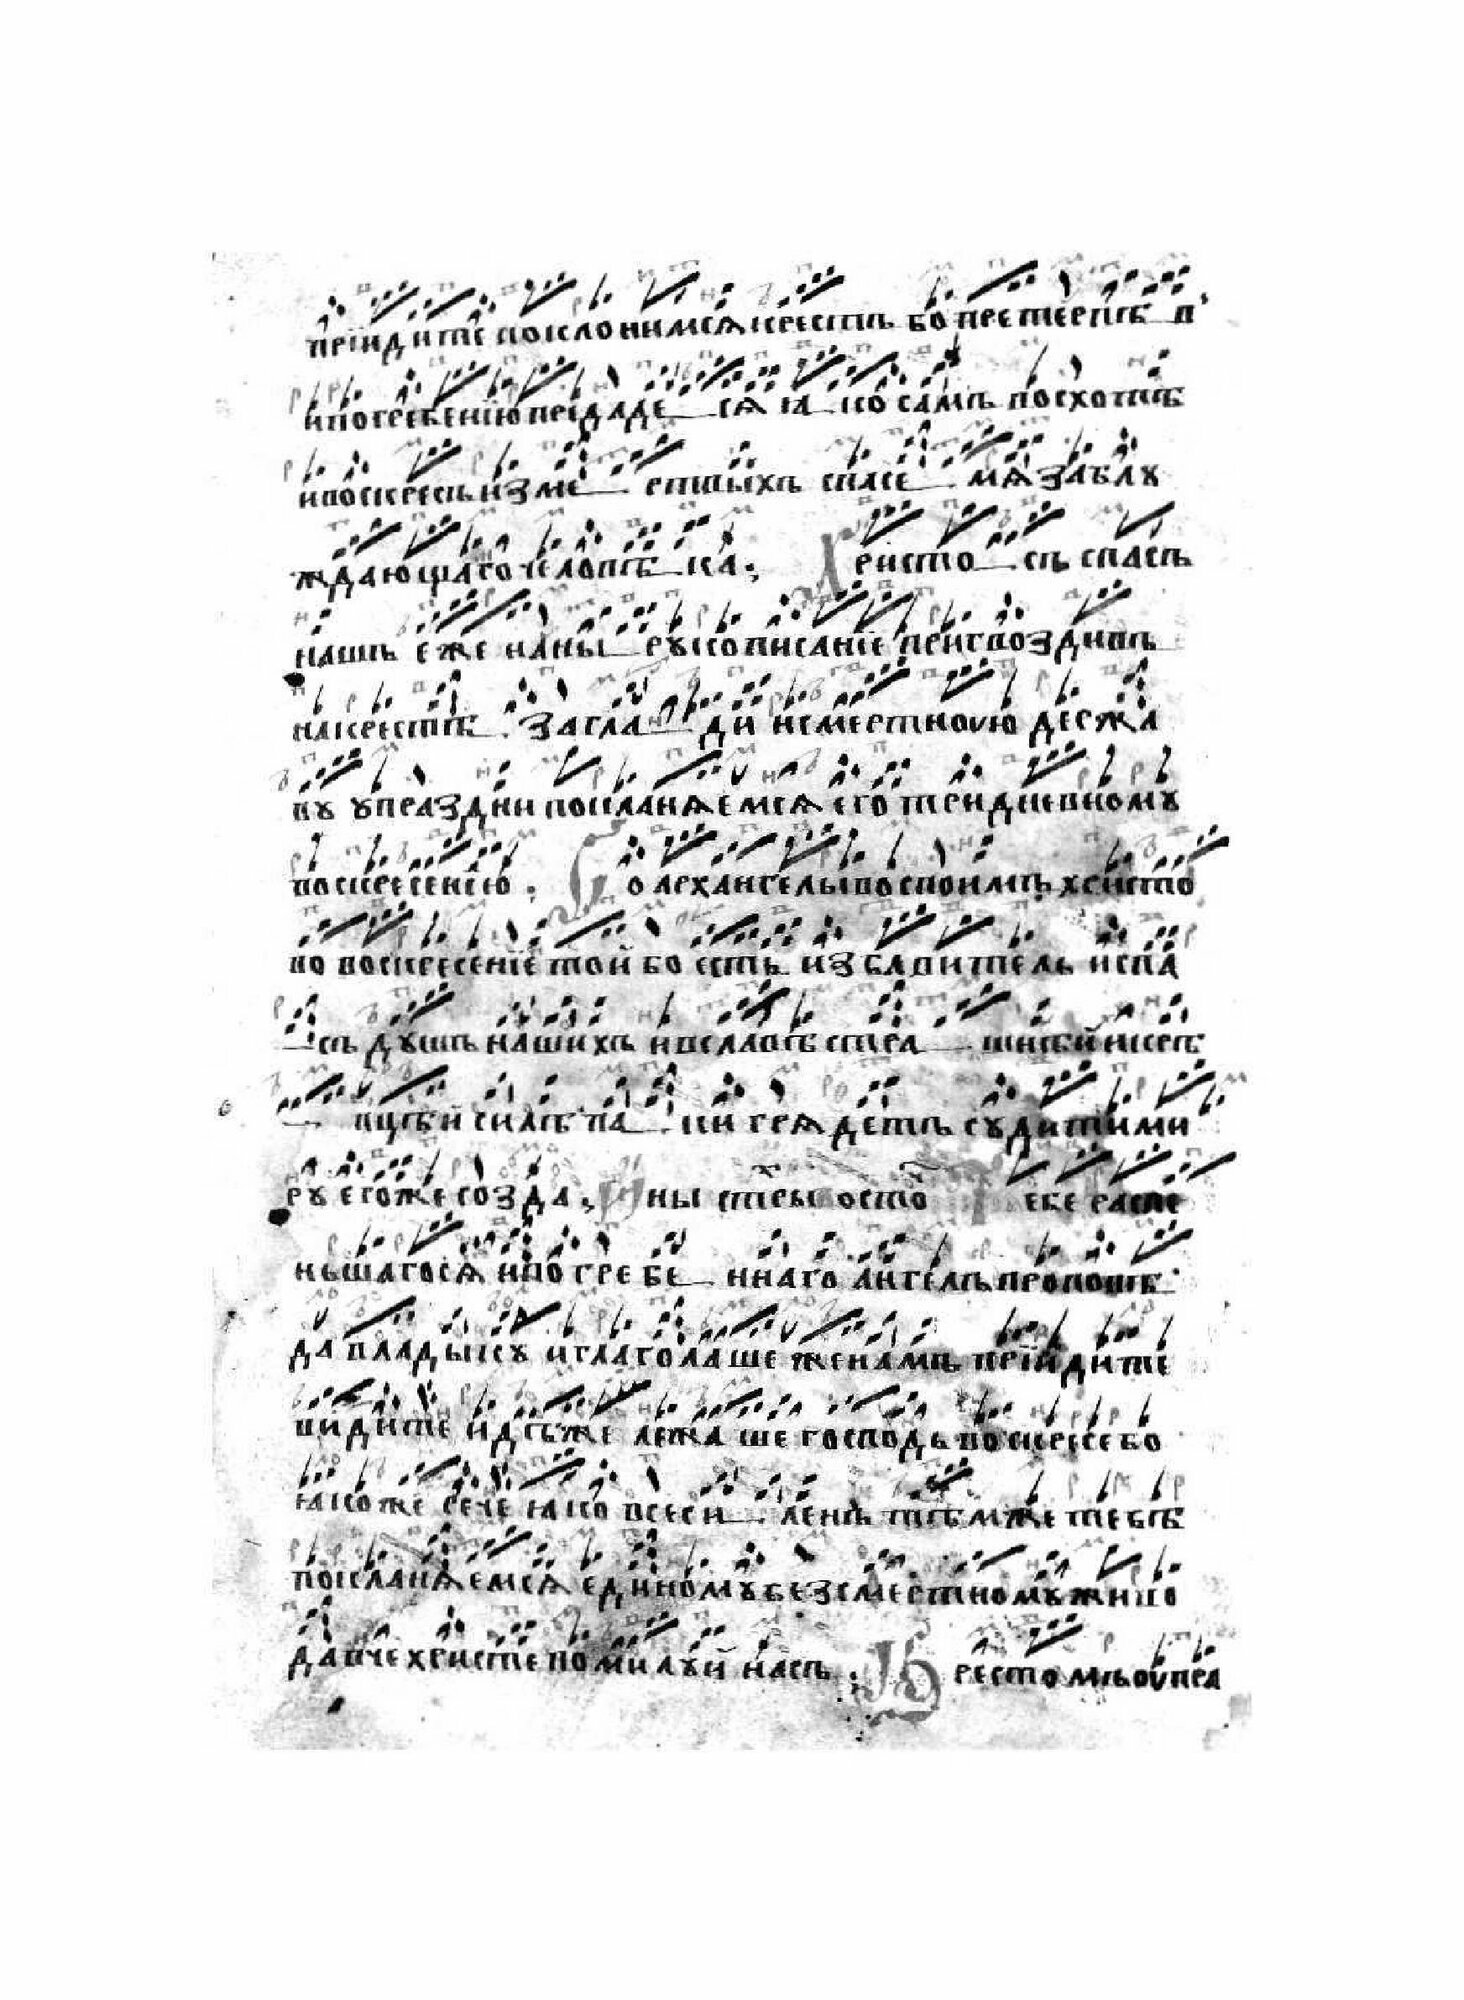 прїидите поклонимся крестъ бо претерпѣ в
и погребенїю предаде ся ꙗко самъ восхотѣ
и воскресъ изме ртвыхъ спасе мя заблу
ждающаго человѣ ка
Христо съ спасъ
нашъ еже на ны рукописанїе пригвоздивъ
на крестѣ загла ди и смертною держа
ву упраздни покланяемся его тридневному
воскресенїю
Со архангелы воспоимъ христо
во воскресенїе той бо есть избавитель и спа
съ душъ нашихъ и в славѣ стра шнѣй и крѣ
пцѣй силѣ па ки грядетъ судити ми
ру егоже созда
ины стры осто
Тебе распе
ншагося и погребе ннаго ангелъ проповѣ
да владыку и глаголаше женамъ прїидите
видите идѣже лежа ше господь воскресе бо
ꙗкоже рече ꙗко всеси ленъ тѣмже тебѣ
покланяемся единому безсмертному живо
давче христе помилуй насъ
Крестомъ ѹпра